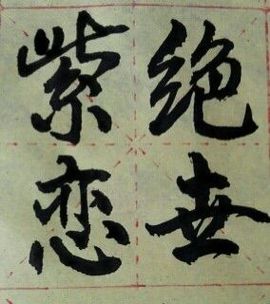 绝世
紫恋